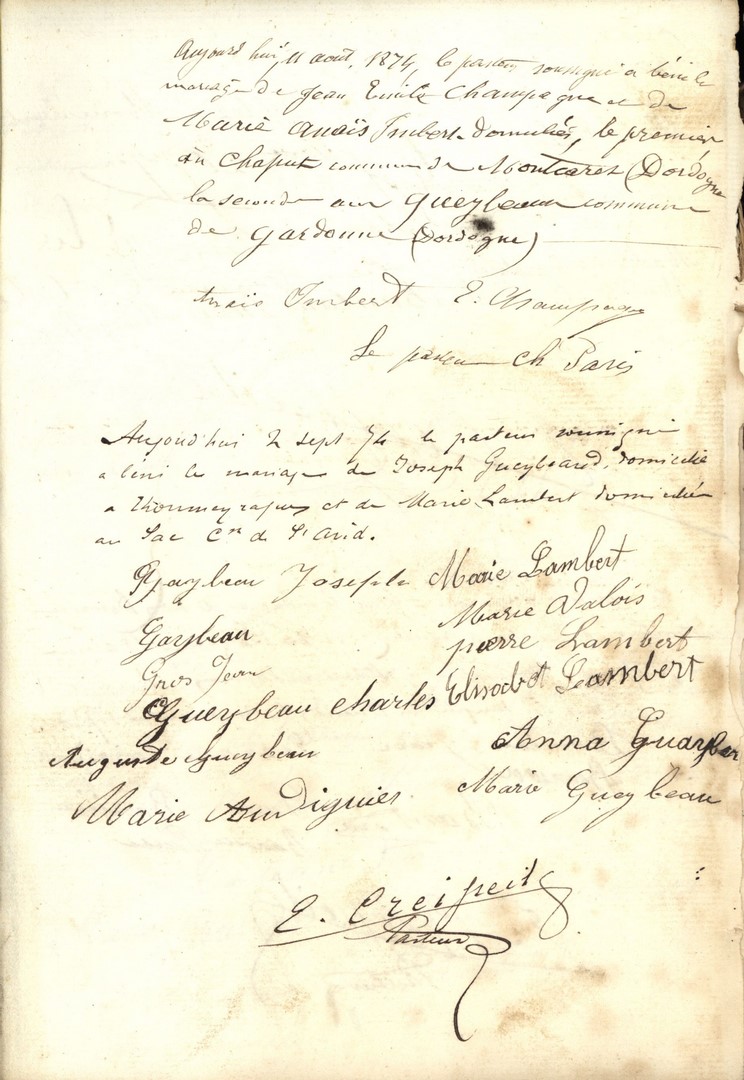 Aujourd'hui, 11 août, 1874, le pasteur soussigné a béni le
mariage de Jean Emile Champagne et de
Marie Anaïs Imbert domiciliés, le premier
au Chaput commune de Montcaret (Dordogne
la seconde aux Gueybeaux commune
de Gardonne (Dordogne)
Anaïs Imbert E. Champagne
Le pasteur Ch Paris
Aujourd'hui 2 sept 74 le pasteur soussigné
a béni le mariage de Joseph Gueybeaud, domicilié
a Thoumeyragues et de Marie Lambert domiciliée
au Sac Cne de St Avid.
Gaybeau Joseph Marie Lambert
Marie Valois
Gaybeau
pierre Lambert
Gros Jean
Gueybeau charles Elisabet Lambert
Auguste Gueybeau
Anna Guaybeau
Marie Audiguier Marie Gueybeau
E. Creisseil
Pasteur